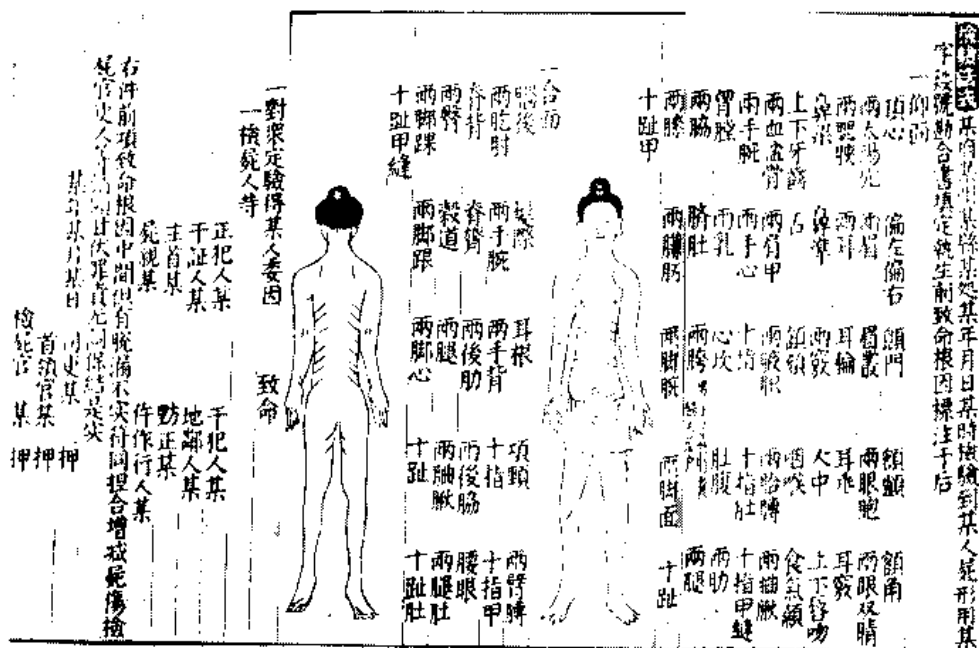 某府某州某縣某処某年月日某時檢驗到某人屍形用某
字段號勘合書填定執生前致命根因標注于后
一仰面
頂心 偏左偏右 顖門 額顱 額角
兩太陽穴 兩眉 眉叢 兩眼胞 兩眼双睛
兩腮頰 兩耳 耳輪 耳垂 耳竅
鼻梁 鼻準 兩竅 人中 上下唇吻
上下牙齒 舌 頷頦 咽喉 食氣顙
兩血盆骨 兩肩甲 兩腋胑 兩胳膊
兩手腕 兩手心 十指 十指肚 十指甲縫
胷膛 兩乳 心坎 肚腹 兩肋
兩脇 臍肚 兩胯 兩腿
兩膝 兩臁肕 兩脚腕 兩脚面 十趾
十趾甲
一合面
腦後 髮際 耳根 項頸 兩臂膊
兩肐肘 兩手腕 兩手背 十指 十指甲
脊背 脊膂 兩後肋 兩後脇 腰眼
兩臀 穀道 兩腿 兩腿肚
兩脚踝 兩脚跟 兩脚心 十趾 十趾肚
十趾甲縫
一對衆定驗得某人委因 致命
一檢屍人等
正犯人某 干犯人某
干証人某 地鄰人某
主首某 正某
屍親某 仵作行人某
右件前項致命根因中間但有脫漏不実符同捏合增減屍傷檢
屍官吏人等情願甘伏罪責無詞保結是実
某年某月某日 司吏某 押
首領官某 押
檢屍官 某 押